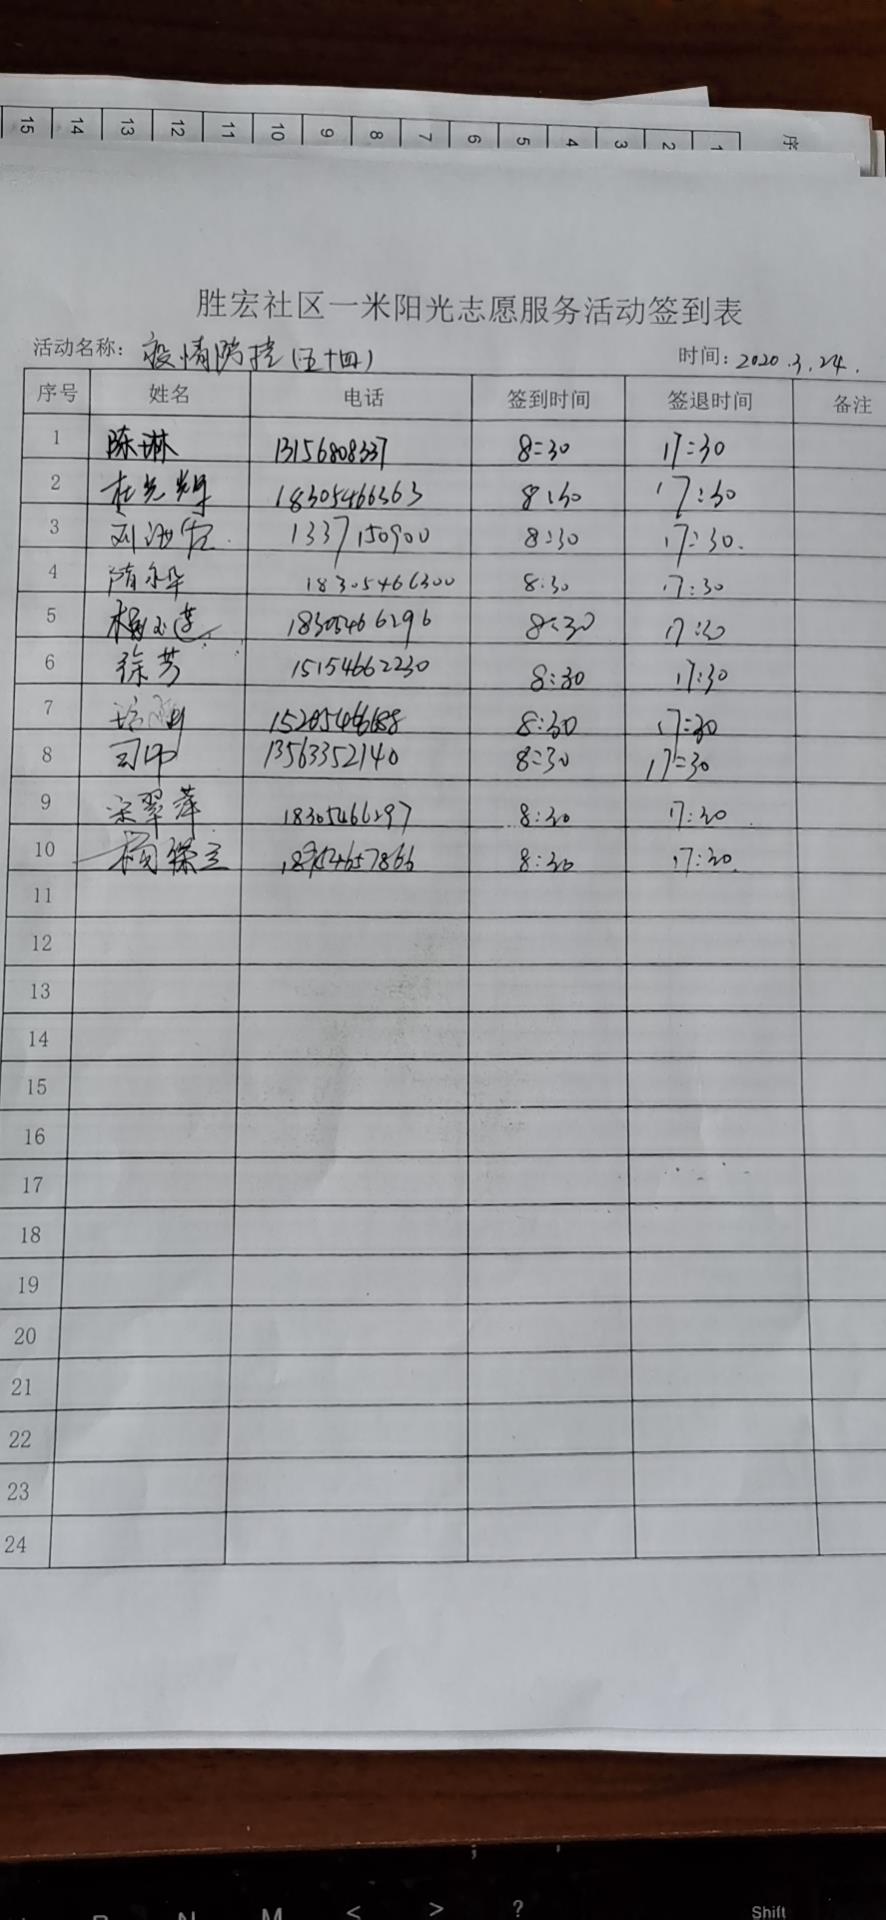 15 14 13 12 11 10 9 8 7 6 5 4 3 2 1 序
胜宏社区一米阳光志愿服务活动签到表
活动名称: 疫情防控(五十四) 时间: 2020.3.24.
序号 姓名 电话 签到时间 签退时间 备注
1 陈琳 13156808337 8:30 17:30
2 杜光辉 18305466363 8:30 17:30
3 1337150900 8:30 17:30.
4 隋永华 18305466300 8:30 17:30
5 杨玉莲 18305466296 8:30 17:30
6 徐芳 15154662230 8:30 17:30
7 8:30 17:30
8 司帅 13563352140 8:30 17:30
9 宋翠萍 18305466297 8:30 17:30
10 8:30 17:30.
11
12
13
14
15
16
17
18
19
20
21
22
23
24
N M < > ? Shift